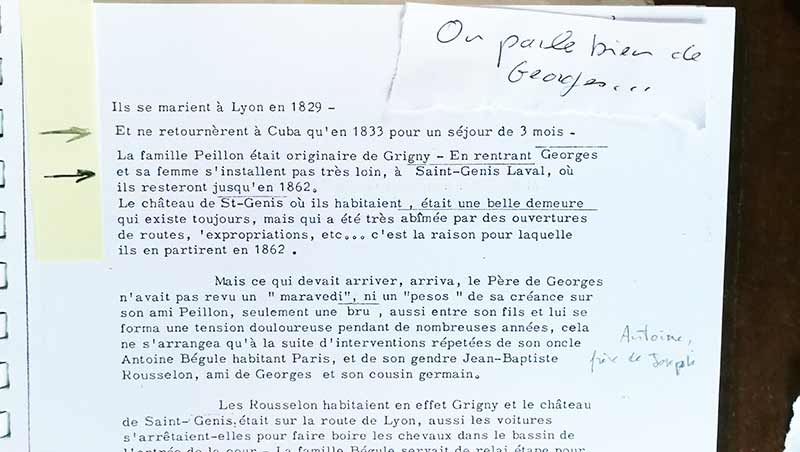 On parle bien de
Georges...
Ils se marient à Lyon en 1829 -
Et ne retournèrent à Cuba qu'en 1833 pour un séjour de 3 mois -
La famille Peillon était originaire de Grigny - En rentrant Georges
et sa femme s'installent pas très loin, à Saint-Genis Laval, où
ils resteront jusqu'en 1862.
Le château de St-Genis où ils habitaient , était une belle demeure
qui existe toujours, mais qui a été très abîmée par des ouvertures
de routes, 'expropriations, etc... c'est la raison pour laquelle
ils en partirent en 1862 .
Mais ce qui devait arriver, arriva, le Père de Georges
n'avait pas revu un " maravedi", ni un "pesos " de sa créance sur
son ami Peillon, seulement une bru , aussi entre son fils et lui se
forma une tension douloureuse pendant de nombreuses années, cela
ne s'arrangea qu'à la suite d'interventions répetées de son oncle
Antoine Bégule habitant Paris, et de son gendre Jean-Baptiste
Rousselon, ami de Georges et son cousin germain.
Antoine,
frère de Joseph
Les Rousselon habitaient en effet Grigny et le château
de Saint-Genis.était sur la route de Lyon, aussi les voitures
s'arrêtaient-elles pour faire boire les chevaux dans le bassin de
l'entrée de la cour - La famille Bégule servait de relai étape pour